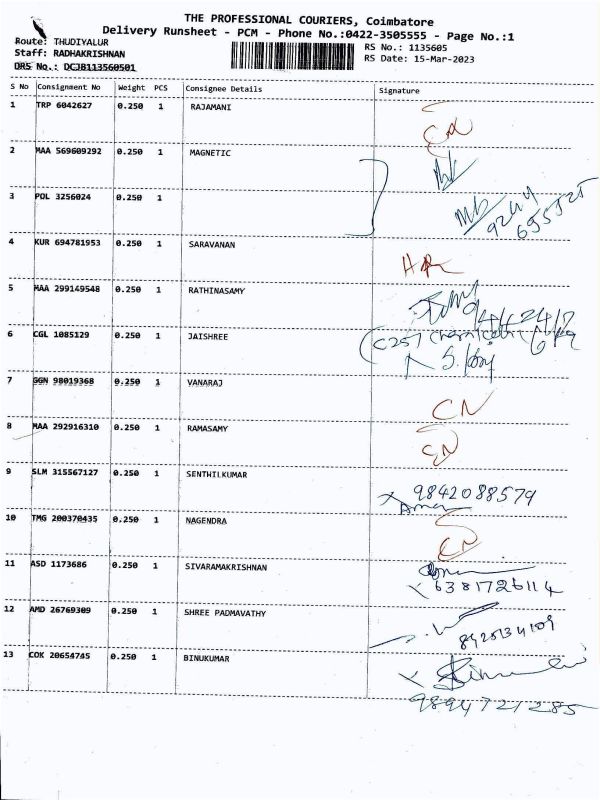 THE PROFESSIONAL COURIERS, Coimbatore
Delivery Runsheet - PCM - Phone No.:0422-3505555 - Page No.:1
Route: THUDIYALUR
Staff: RADHAKRISHNAN
DRS No.: DCJB113560501
RS No.: 1135605
RS Date: 15-Mar-2023
S No Consignment No Weight PCS Consignee Details Signature
1 TRP 6042627 0.250 1 RAJAMANI
CN
2 MAA 569609292 0.250 1 MAGNETIC
3 POL 3256024 0.250 1
4 KUR 694781953 0.250 1 SARAVANAN
5 MAA 299149548 0.250 1 RATHINASAMY
6 CGL 1085129 0.250 1 JAISHREE
7 GGN 98019368 0.250 1 VANARAJ
CN
8 MAA 292916310 0.250 1 RAMASAMY
CN
9 SLM 315567127 0.250 1 SENTHILKUMAR
9842088579
10 TMG 200370435 0.250 1 NAGENDRA
CN
11 ASD 1173686 0.250 1 SIVARAMAKRISHNAN
6381726114
12 AMD 26769309 0.250 1 SHREE PADMAVATHY
13 COK 20654745 0.250 1 BINUKUMAR
9894721285